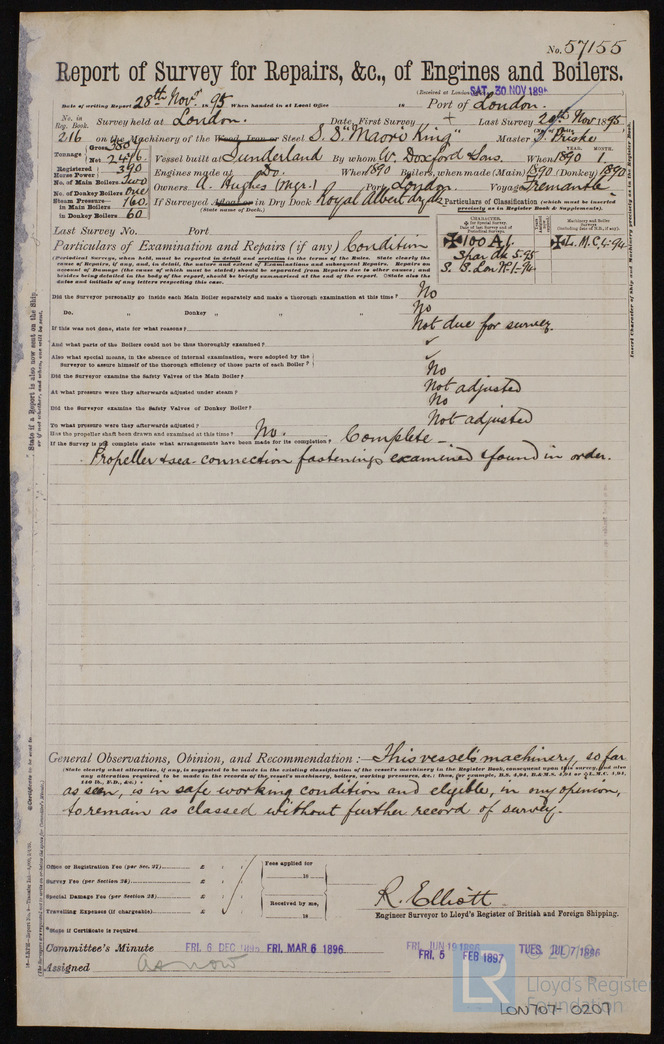 No. 57155
Report of Survey for Repairs, &c., of Engines and Boilers.
(Received at London SAT. 30 NOV 189
Date of writing Report 28th Novr 1895 When handed in at Local Office 18 Port of London.
No. in Reg. Book. Survey held at London. Date, First Survey + Last Survey 29th Nov 1895
216 on the Machinery of the Wood, Iron or Steel S.S. "Maori King" Master J. Priske
Tonnage Gross
Net
Vessel built at Sunderland By whom W. Doxford & Sons. When 1890 1
Registered Horse Power 390
Engines made at Do. When 1890 Boilers, when made (Main) 1890 (Donkey) 1890
No. of Main Boilers Two
No. of Donkey Boilers One
Owners A. Hughes (Mgr.) Port London. Voyage Fremantle
Steam Pressure in Main Boilers 160
in Donkey Boilers 60
If Surveyed Afloat or in Dry Dock Royal Albert dry dk
(State name of Dock.)
Particulars of Classification (which must be inserted precisely as in Register Book & Supplements).
Last Survey No. Port
Particulars of Examination and Repairs (if any) Condition
✠100A1.
Spar dk 5.95
S. S. Lon No.1-94
✠L.M.C. 4.94
Did the Surveyor personally go inside each Main Boiler separately and make a thorough examination at this time? No
Do. Donkey " " " No
If this was not done, state for what reasons? Not due for survey.
And what parts of the Boilers could not be thoroughly examined? ✓
Also what special means, in the absence of internal examination, were adopted by the Surveyor to assure himself of the thorough efficiency of those parts of each Boiler? ✓
Did the Surveyor examine the Safety Valves of the Main Boiler? No
At what pressure were they afterwards adjusted under steam? Not adjusted
Did the Surveyor examine the Safety Valves of Donkey Boiler? No
To what pressure were they afterwards adjusted? Not adjusted
Has the propeller shaft been drawn and examined at this time? No.
If the Survey is not complete state what arrangements have been made for its completion? Complete
Propeller & sea connection fastenings examined & found in order.
General Observations, Opinion, and Recommendation :— This vessel's machinery, so far
(State clearly what alteration, if any, is suggested to be made in the existing classification of the vessel's machinery in the Register Book, consequent upon this survey, and also
any alteration required to be made in the records of the vessel's machinery, boilers, working pressures, &c.: thus, for example, B.S. 4,94, B.&M.S. 4,94 or ✠L.M.C. 4,94,
140 lb., F.D., &c.)
as seen, is in safe working condition and eligible, in my opinion,
to remain as classed without further record of survey.
Office or Registration Fee (per Sec. 27) £ : :
Survey Fee (per Section 28) £ : :
Special Damage Fee (per Section 28) £ : :
Travelling Expenses (if chargeable) £ : :
Fees applied for
18
Received by me,
18
R. Elliott
Engineer Surveyor to Lloyd's Register of British and Foreign Shipping.
*State if Certificate is required
Committee's Minute FRI. 6 DEC 1895 FRI. MAR 6 1896 FRI. JUN 19 1896 TUES. JUL 7 1896
FRI. 5 FEB 1897
Assigned as now
LR
Lloyd's Register
Foundation
LON707-0207